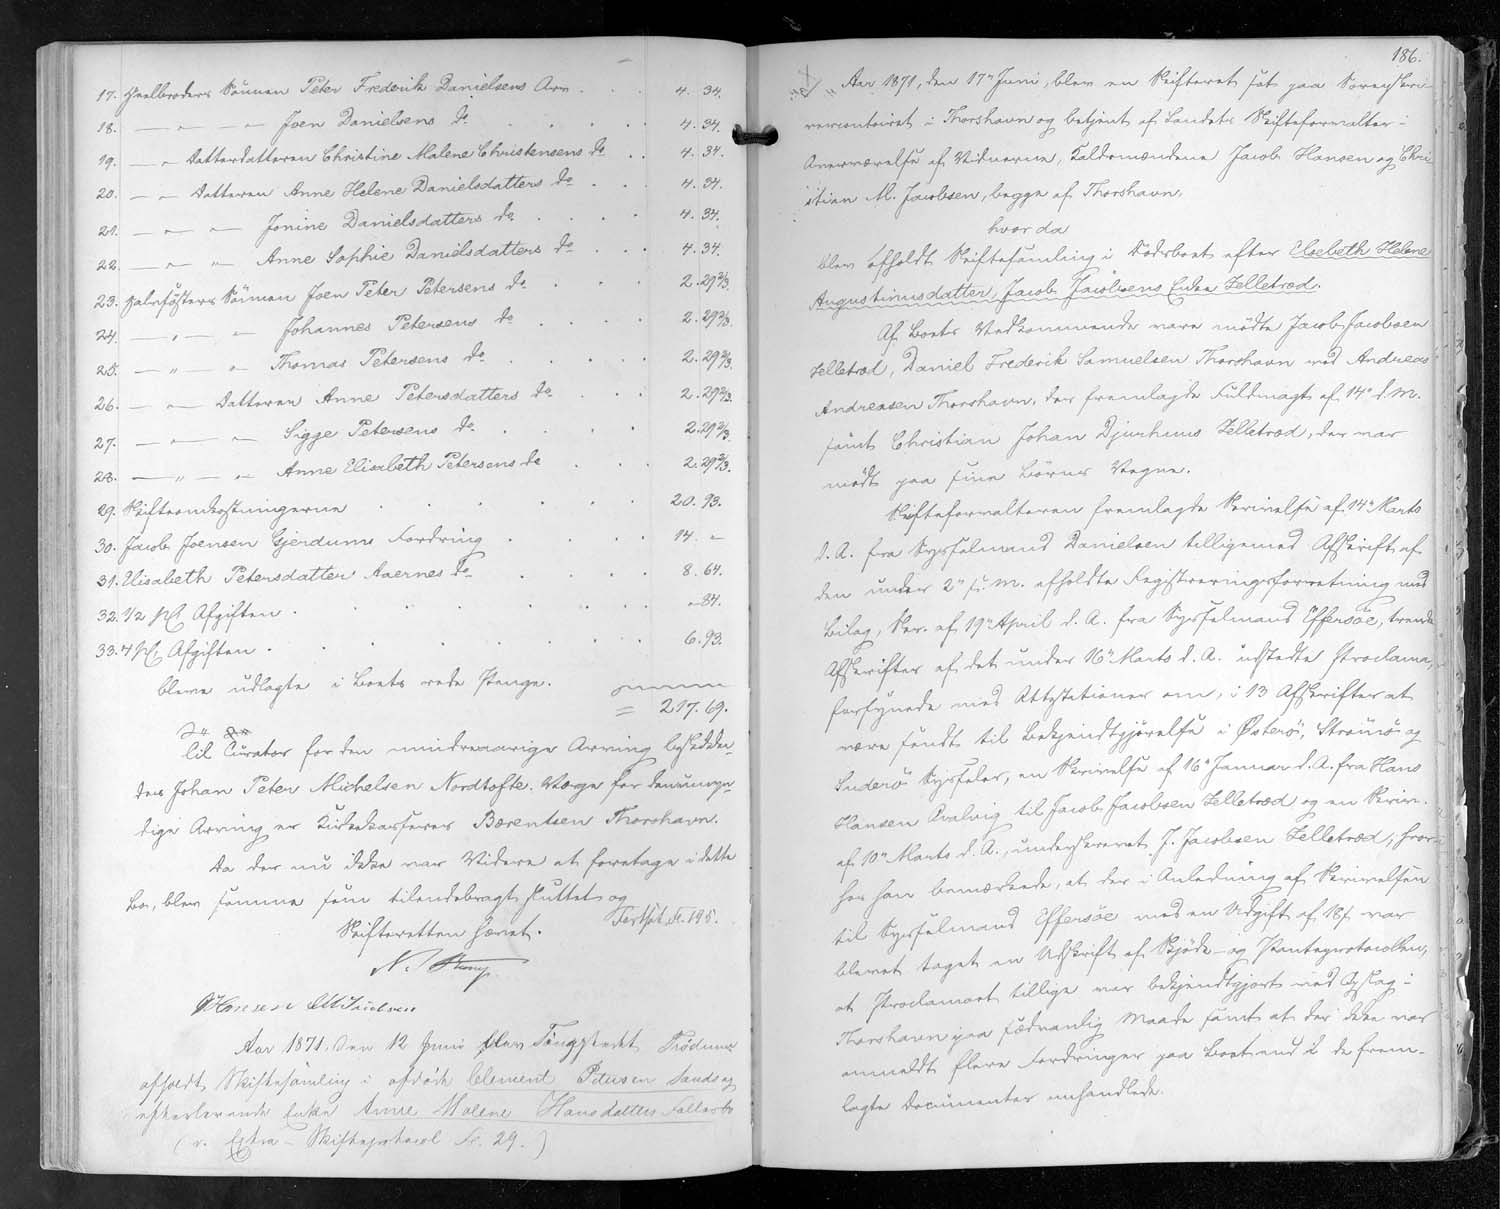 17. Halvbroders Sønnen Peter Frederik Danielsens Arv . . . 4. 34.
18. — " — " — Joen Danielsens do . . . . 4. 34.
19. — " Datterdatteren Christine Malene Christensens do . . 4. 34.
20. — " — Datteren Anne Helene Danielsdatters do . . . 4. 34.
21. — " — " — Jonine Danielsdatters do . . . . 4. 34.
22. — " — " Anne Sophie Danielsdatters do . . . 4. 34.
23. Halvsøsters Sønnen Joen Peter Petersens do . . . 2. 29 2/3.
24. — " — " Johannes Petersens do . . . . 2. 29 2/3.
25. — " — " Thomas Petersens do . . . . . 2. 29 2/3.
26. — " — Datteren Anne Petersdatters do . . . 2. 29 2/3.
27. — " — " Sigge Petersens do . . . . . 2. 29 2/3.
28. — " — " Anne Elisabeth Petersens do . . . 2. 29 2/3.
29. Skifteomkostningerne . . . . . . 20. 93.
30. Jacob Joensen Gjerdums Fordring . . . . 14. "
31. Elisabeth Petersdatter do . . . . 8. 64.
32. 1/2 pCt Afgiften . . . . . . . " 84.
33. 4 pCt Afgiften . . . . . . . 6. 93.
bleve udlagte i Boets rede Penge.
= 217. 69.
Til Curator for den mindreaarige Arving beskikke-
des Johan Peter Michelsen Nordtofte. Værge for den umyn-
dige Arving er Kirkekasserer Bærentsen Thorshavn.
Da der nu ikke var Videre at foretage i dette
Bo, blev samme som tilendebragt sluttet og
Skifteretten hævet. Fortsat. Fo. 195.
Hansen C M Jacobsen
Aar 1871, den 12 Juni blev Tingstedet
afholdt Skiftesamling i afdøde Clement Petersen Sands og
efterlevende Enke Anne Malene Hansdatters Fællesbo
(v. Extra-Skifteprotocol Fo. 29.)
186.
Aar 1871, den 17de Juni, blev en Skifteret sat paa Sorenskri-
vercontoiret i Thorshavn og betjent af Landets Skifteforvalter i
Overværelse af Vidnerne, Tåldsmændene Jacob Hansen og Chri-
stian M. Jacobsen, begge af Thorshavn,
hvor da
blev afholdt Skiftesamling i Dødsboet efter Elsebeth Helene
Augustinusdatter, Jacob Jacobsens Enke Selletræd.
Af Boets Vedkommende vare mødte Jacob Jacobsen
Selletræd, Daniel Frederik Samuelsen Thorshavn ved Andreas
Andreasen Thorshavn, der fremlagde Fuldmagt af 14de d. M.
samt Christian Johan Djurhuus Selletræd, der var
mødt paa sine Børns Vegne.
Skifteforvalteren fremlagde Skrivelse af 14de Marts
d. A. fra Sysselmand Danielsen tilligemed Afskrift af
den under 2den s. M. afholdte Registreringsforretning med
Bilag, Skr. af 19de April d. A. fra Sysselmand Effersøe, trende
Afskrifter af det under 16de Marts d. A. udstedte Proclama,
forsynede med Attestationer om, i 13 Afskrifter at
være sendt til Bekjendtgjørelse i Østerø, Strømø og
Suderø Sysseler, en Skrivelse af 16de Januar d. A. fra Hans
Hansen Qvalvig til Jacob Jacobsen Selletræd og en Skriv.
af 10de Marts d. A., underskrevet J. Jacobsen Selletræd; hvor-
hos han bemærkede, at der i Anledning af Skrivelsen
til Sysselmand Effersøe med en Udgift af 18 s. var
blevet taget en Udskrift af Skjøde- og Panteprotocollen,
at Proclamaet tillige var bekjendtgjort ved Opslag i
Thorshavn paa sædvanlig Maade samt at der ikke var
anmeldt flere Fordringer paa Boet end de i de frem-
lagte Documenter omhandlede.